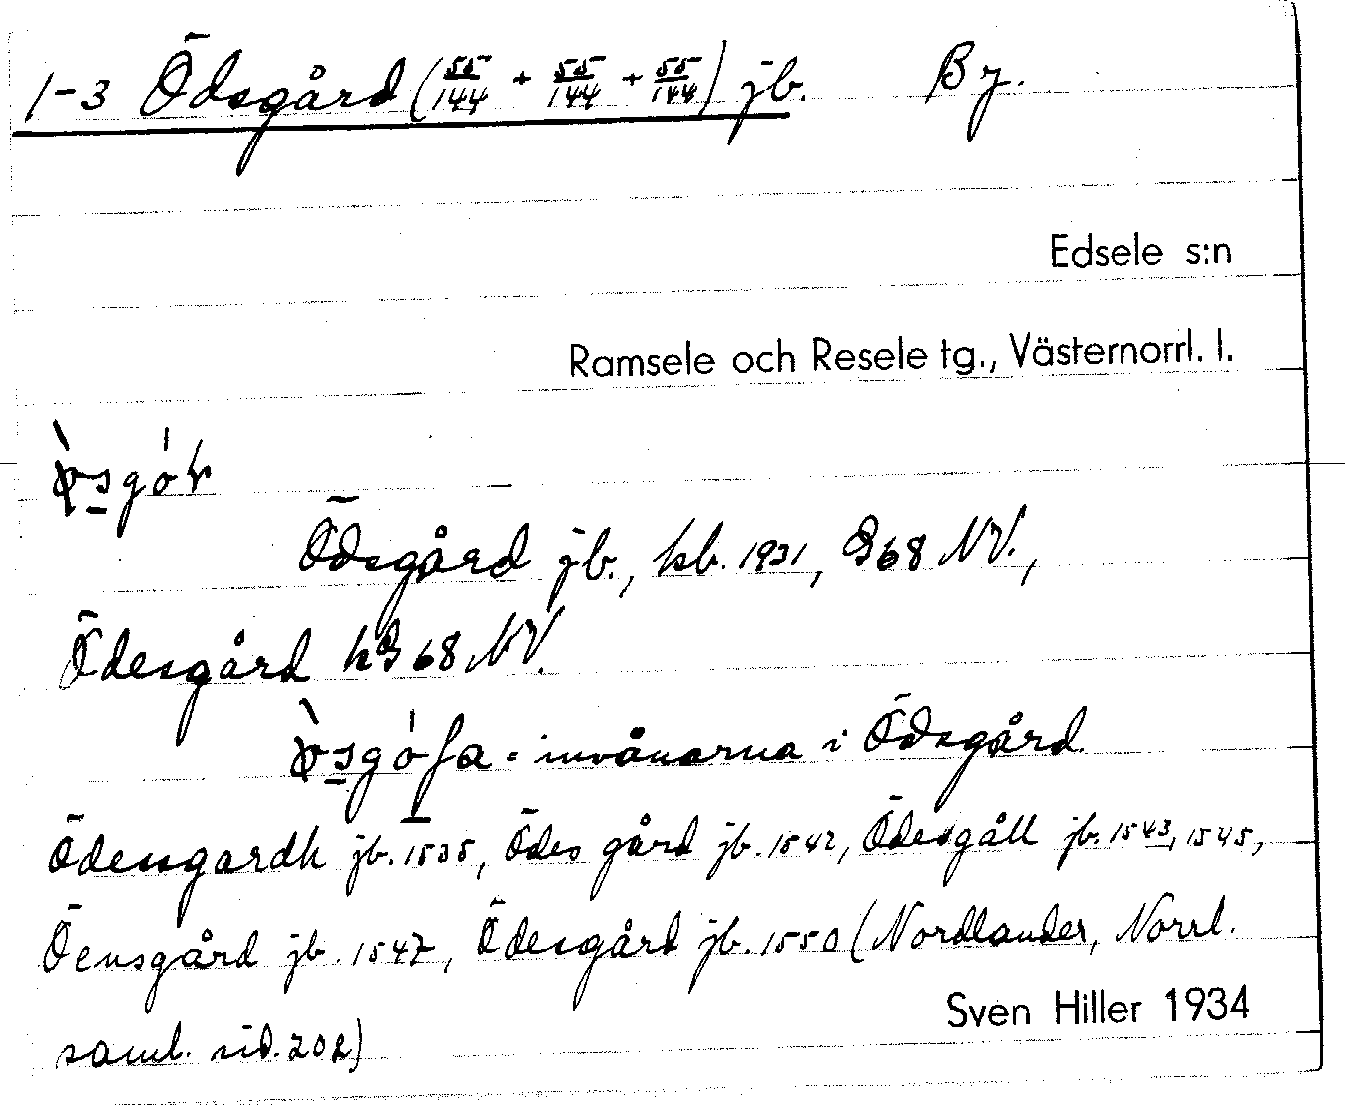 1-3 Ödsgård (55/144 + 55/144 + 55/144) jb. By.
Edsele s:n
Ramsele och Resele tg., Västernorrl. l.
Ödsgård jb., kb. 1931, G68 NV.,
Ödesgård hG68 NV.
= invånarna i Ödsgård
Ödessgardh jb. 1535, Ödes gård jb. 1542, Ödesgåll jb. 1543, 1545,
Öensgård jb. 1547, Ödesgård jb. 1550 (Nordlander, Norrl.
saml. sid. 202)
Sven Hiller 1934